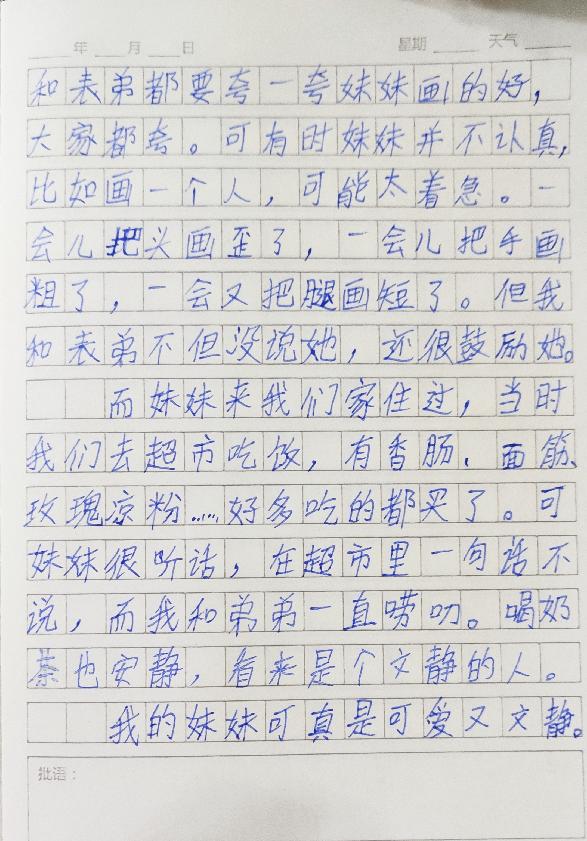 年 月 日 星期 天气
和表弟都要夸一夸妹妹画的好，
大家都夸。可有时妹妹并不认真，
比如画一个人，可能太着急。一
会儿把头画歪了，一会儿把手画
粗了，一会又把腿画短了。但我
和表弟不但没说她，还很鼓励她。
而妹妹来我们家住过，当时
我们去超市吃饭，有香肠、面筋、
玫瑰凉粉……好多吃的都买了。可
妹妹很听话，在超市里一句话不
说，而我和弟弟一直唠叨。喝奶
茶也安静，看来是个文静的人。
我的妹妹可真是可爱又文静。
批语：